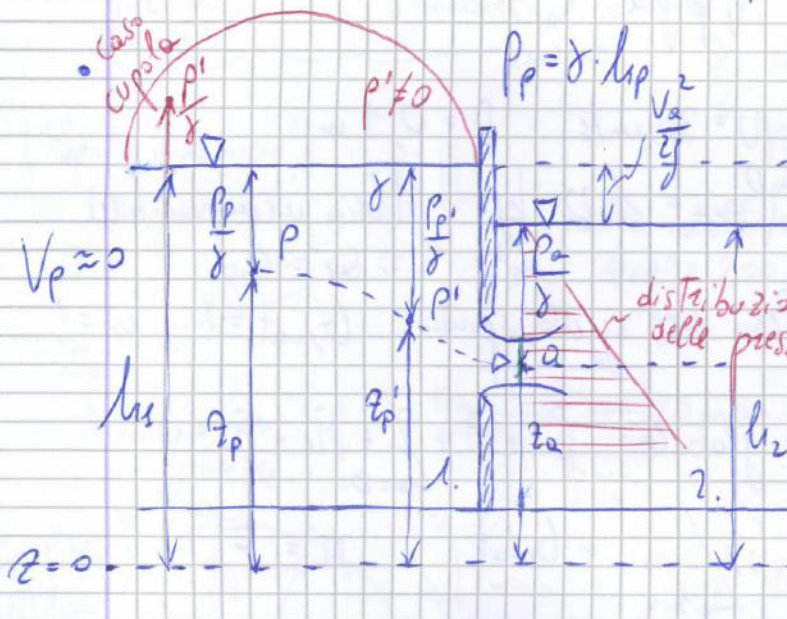 caso
cupola
p'/γ
p' ≠ 0
P_p = γ · h_p
V_a²/2g
P_p/γ
γ
P_p'/γ
P_a/γ
V_p ≈ 0
P
P'
distribuzio
delle press
a
h_1
z_p
z_p'
z_a
h_2
1.
2.
z = 0